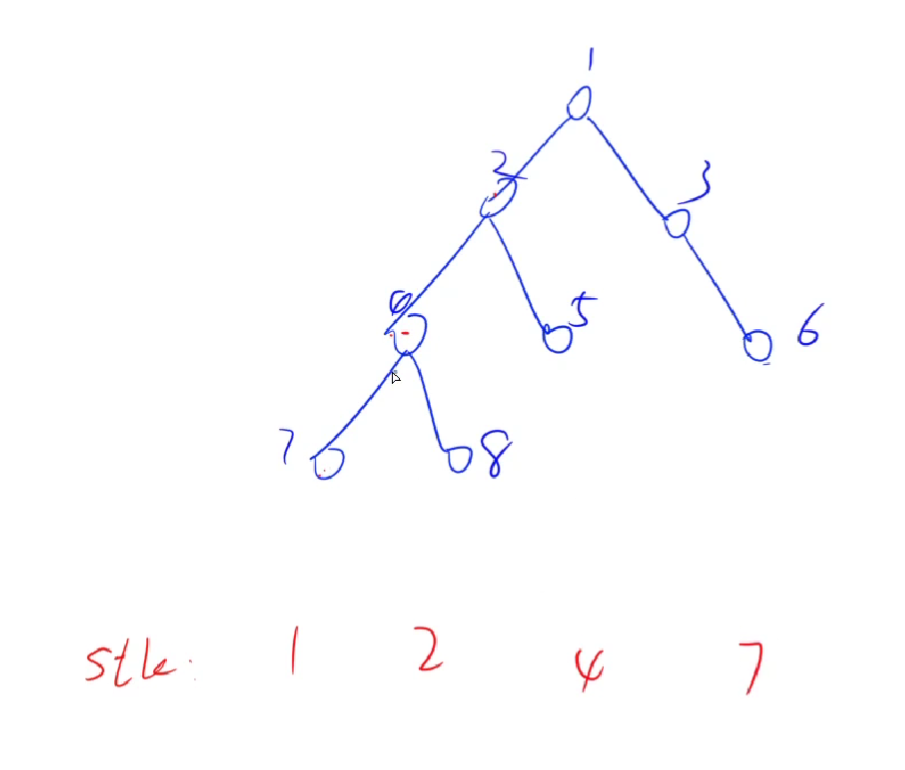 1
2 3
4 5 6
7 8
stk: 1 2 4 7